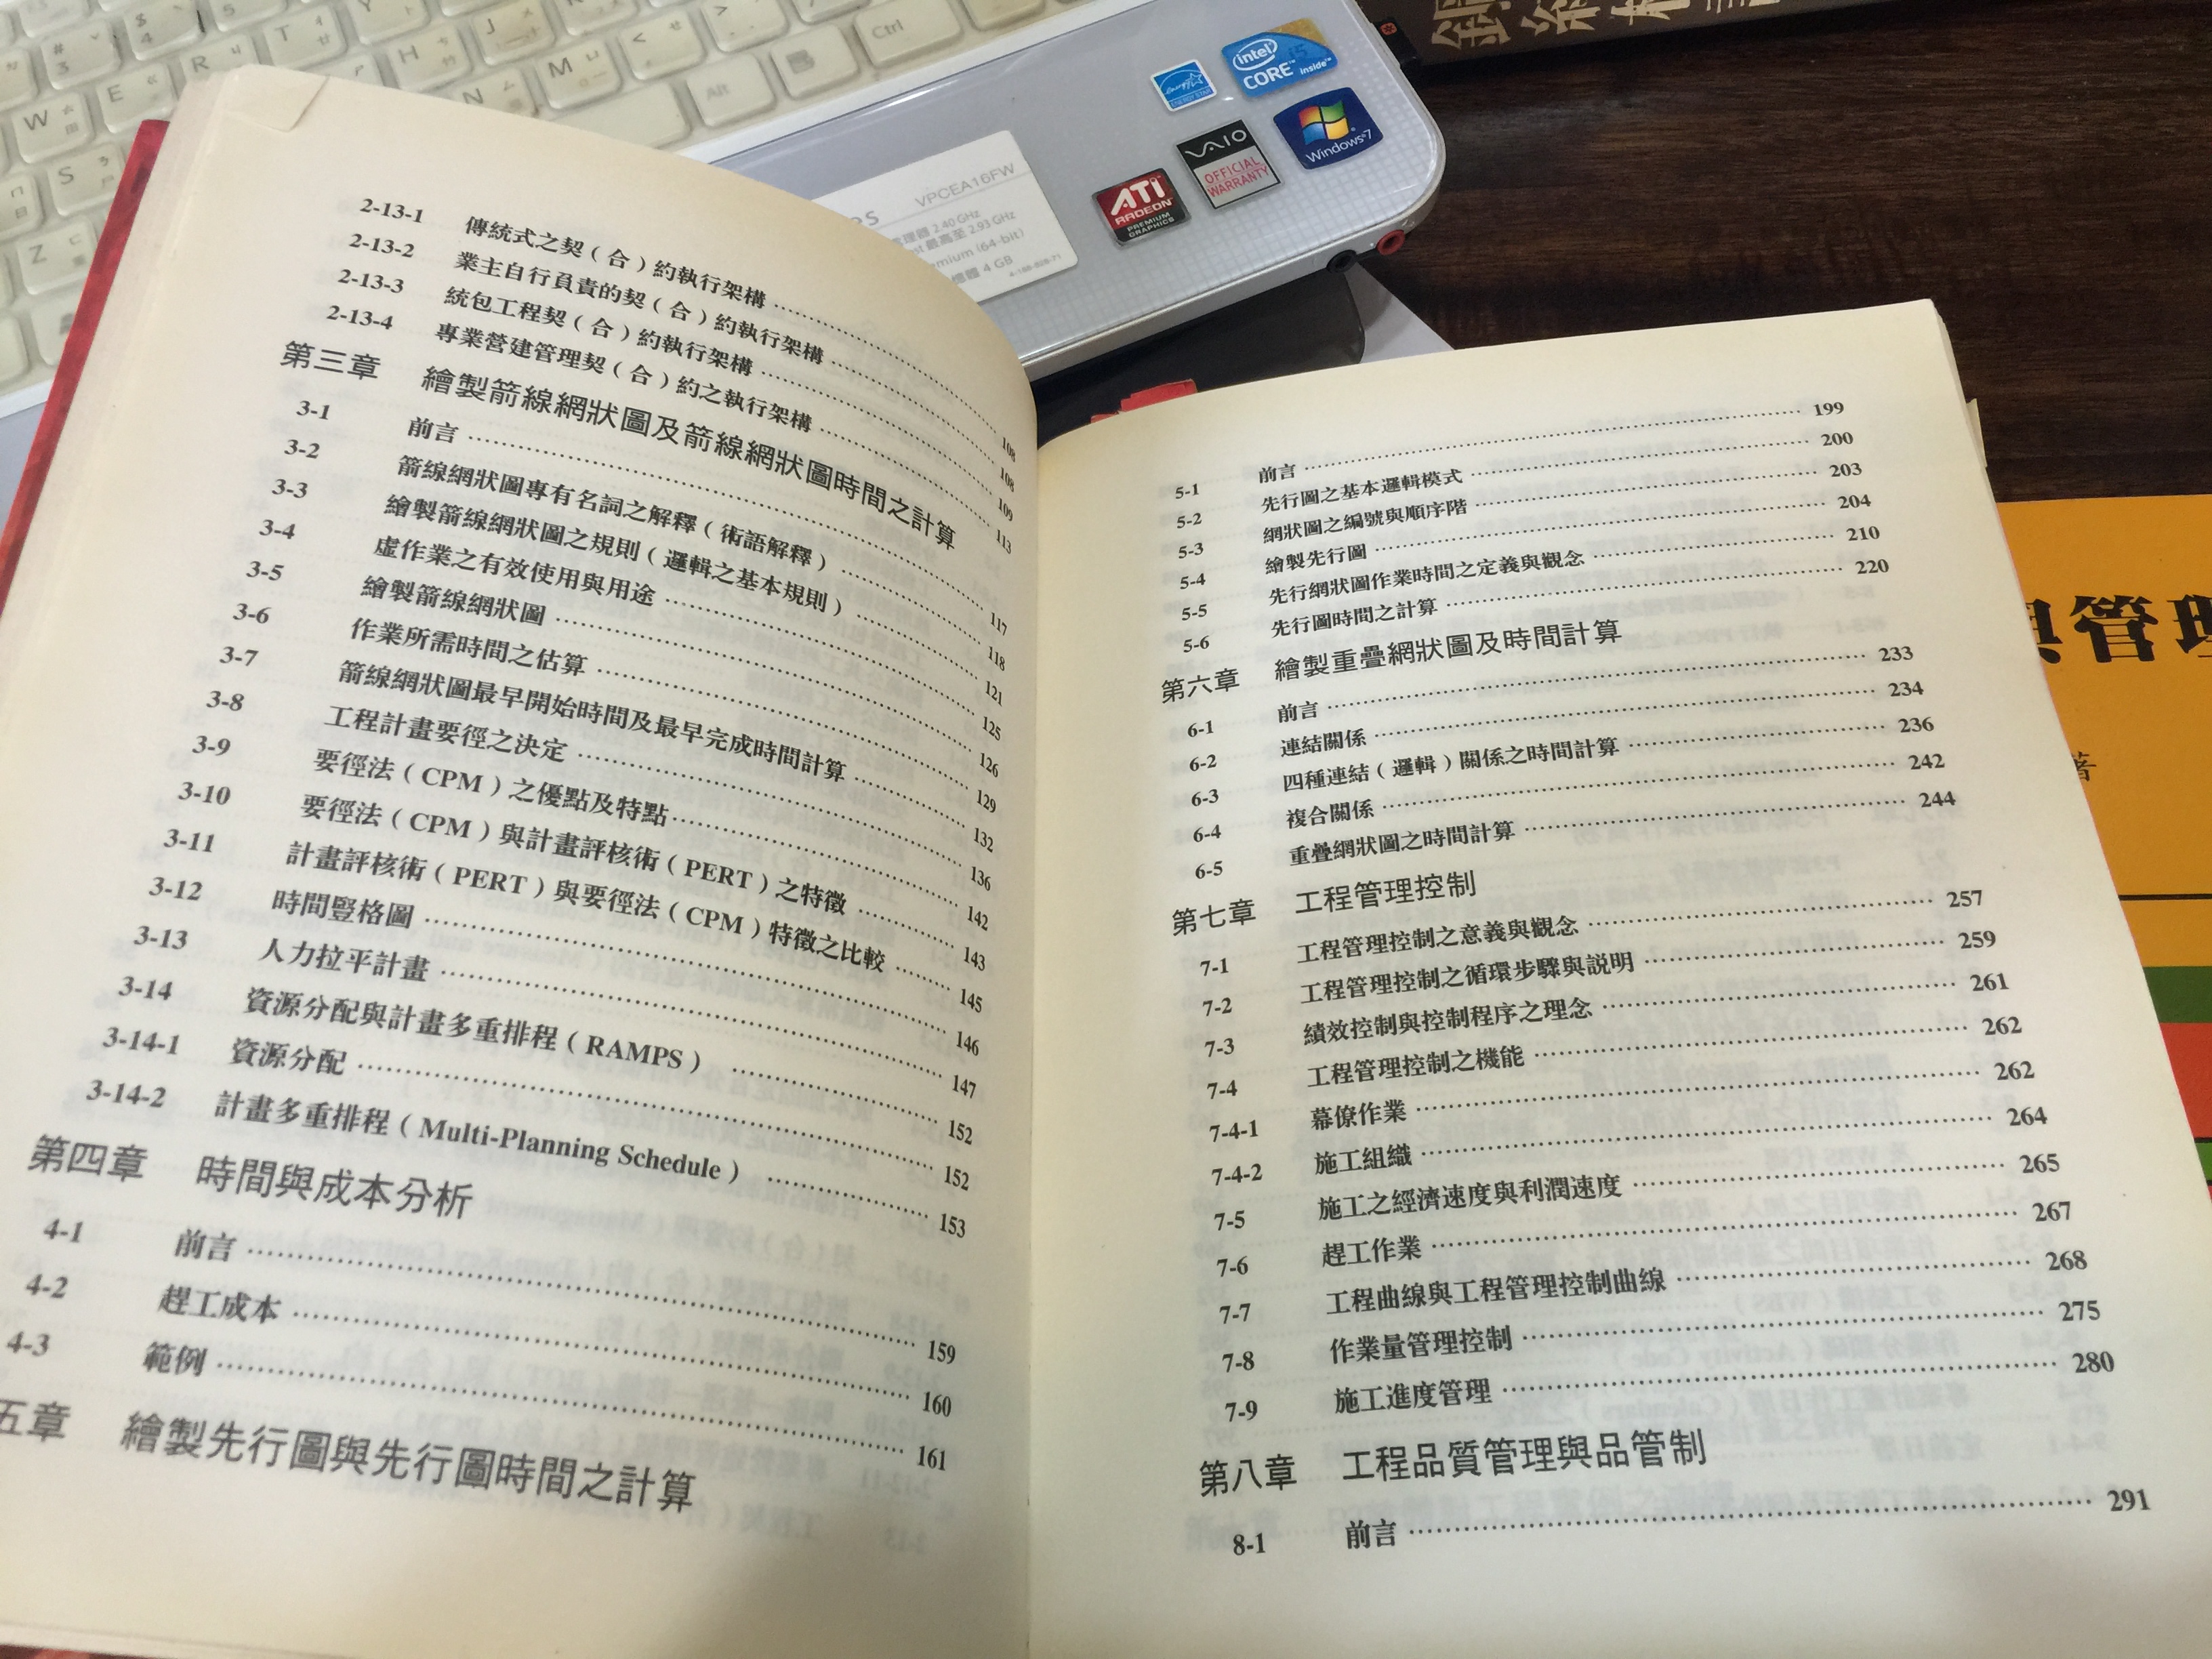 2-13-1 傳統式之契（合）約執行架構 108
2-13-2 業主自行負責的契（合）約執行架構 108
2-13-3 統包工程契（合）約執行架構 109
2-13-4 專業營建管理契（合）約之執行架構 113
第三章 繪製箭線網狀圖及箭線網狀圖時間之計算
3-1 前言 117
3-2 箭線網狀圖專有名詞之解釋（術語解釋） 118
3-3 繪製箭線網狀圖之規則（邏輯之基本規則） 121
3-4 虛作業之有效使用與用途 125
3-5 繪製箭線網狀圖 126
3-6 作業所需時間之估算 129
3-7 箭線網狀圖最早開始時間及最早完成時間計算 132
3-8 工程計畫要徑之決定 136
3-9 要徑法（CPM）之優點及特點 142
3-10 要徑法（CPM）與計畫評核術（PERT）之特徵 143
3-11 計畫評核術（PERT）與要徑法（CPM）特徵之比較 145
3-12 時間豎格圖 146
3-13 人力拉平計畫 147
3-14 資源分配與計畫多重排程（RAMPS） 152
3-14-1 資源分配 152
3-14-2 計畫多重排程（Multi-Planning Schedule） 153
第四章 時間與成本分析
4-1 前言 159
4-2 趕工成本 160
4-3 範例 161
五章 繪製先行圖與先行圖時間之計算
5-1 前言 199
5-2 先行圖之基本邏輯模式 200
5-3 網狀圖之編號與順序階 203
5-4 繪製先行圖 204
5-5 先行網狀圖作業時間之定義與觀念 210
5-6 先行圖時間之計算 220
第六章 繪製重疊網狀圖及時間計算
6-1 前言 233
6-2 連結關係 234
6-3 四種連結（邏輯）關係之時間計算 236
6-4 複合關係 242
6-5 重疊網狀圖之時間計算 244
第七章 工程管理控制
7-1 工程管理控制之意義與觀念 257
7-2 工程管理控制之循環步驟與說明 259
7-3 績效控制與控制程序之理念 261
7-4 工程管理控制之機能 262
7-4-1 幕僚作業 262
7-4-2 施工組織 264
7-5 施工之經濟速度與利潤速度 265
7-6 趕工作業 267
7-7 工程曲線與工程管理控制曲線 268
7-8 作業量管理控制 275
7-9 施工進度管理 280
第八章 工程品質管理與品管制
8-1 前言 291
VPCEA16FW
理器 2.40 GHz
最高至 2.93 GHz
emium (64-bit)
4 GB
energy
ENERGY STAR
intel
CORE i5
inside
ATI
RADEON
PREMIUM
GRAPHICS
VAIO
OFFICIAL
WARRANTY
Windows 7
Ctrl
Alt
W
E
R
T
S
Z
H
J
N
M
與管理
著